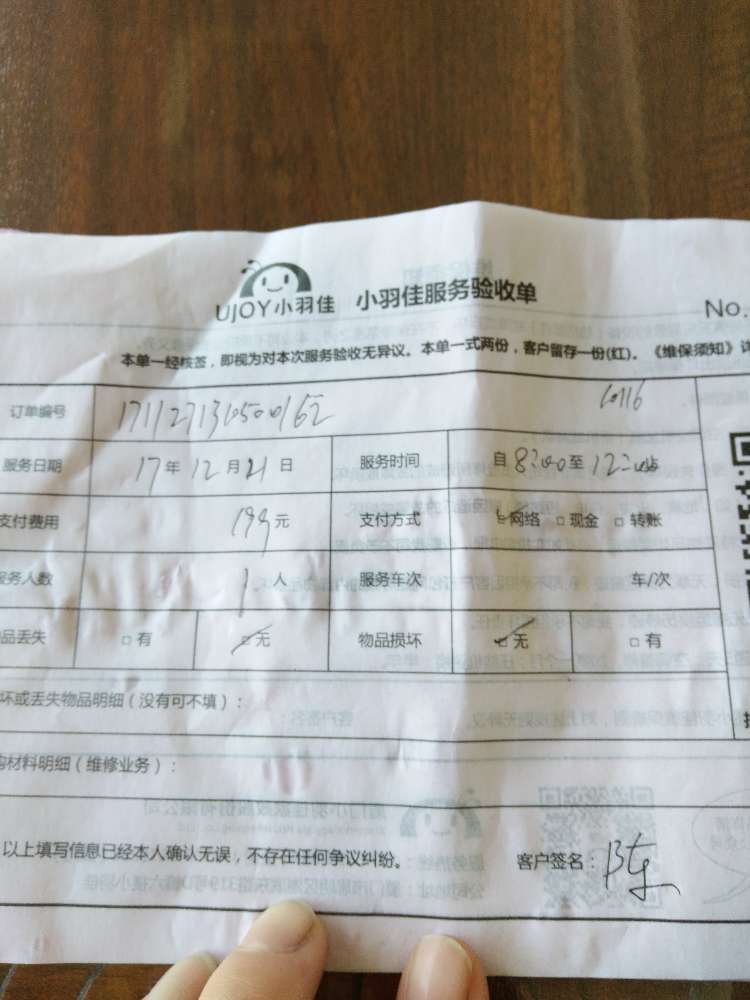 UJOY小羽佳 小羽佳服务验收单
No.
本单一经核签，即视为对本次服务验收无异议。本单一式两份，客户留存一份(红)。《维保须知》详
订单编号
服务日期 17年12月21日 服务时间 自8:00至12:00
支付费用 199元 支付方式 网络 □现金 □转账
服务人数 1人 服务车次 车/次
品丢失 □有 无 物品损坏 无 □有
坏或丢失物品明细（没有可不填）：
购材料明细（维修业务）：
以上填写信息已经本人确认无误，不存在任何争议纠纷。 客户签名：